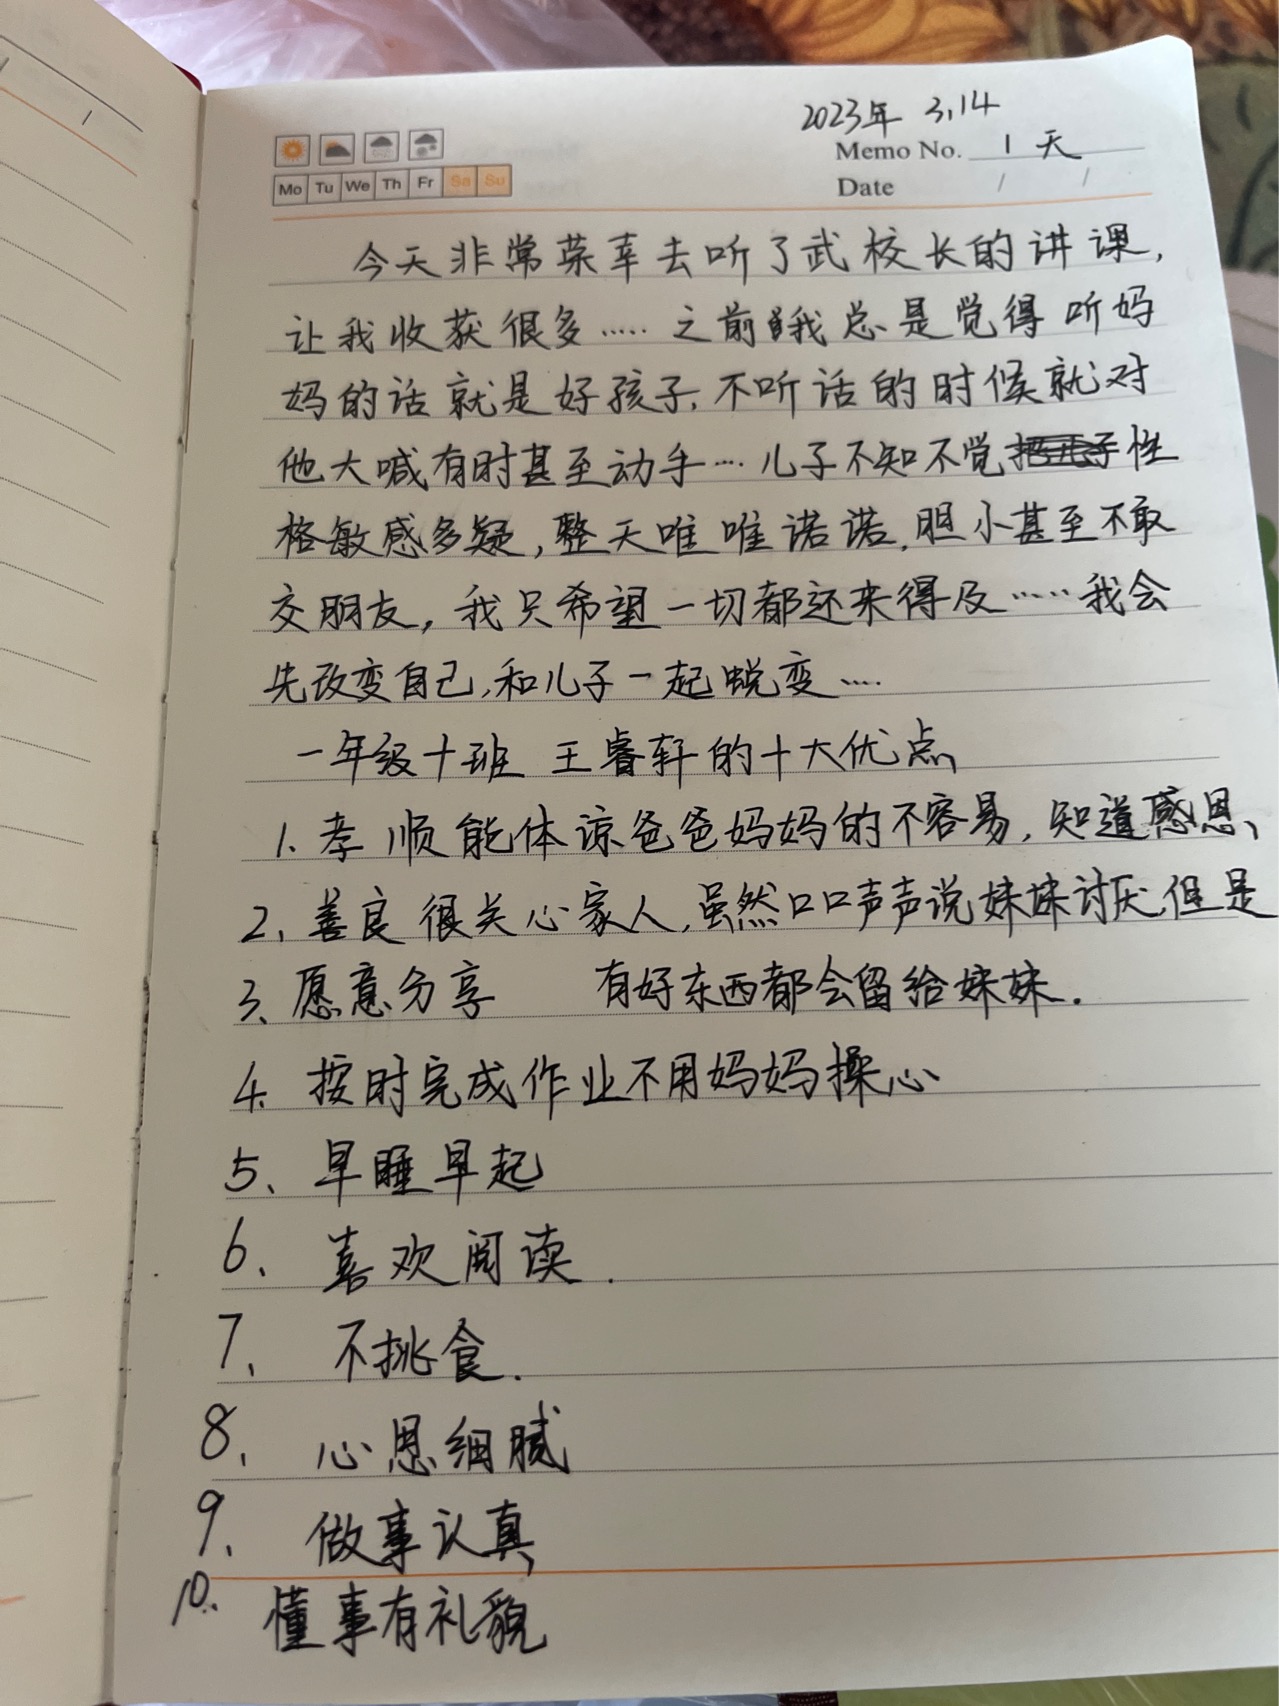 2023年 3.14
Memo No. 1 天
Mo Tu We Th Fr Sa Su
Date / /
今天非常荣幸去听了武校长的讲课,
让我收获很多..... 之前我总是觉得听妈
妈的话就是好孩子,不听话的时候就对
他大喊有时甚至动手... 儿子不知不觉性
格敏感多疑,整天唯唯诺诺,胆小甚至不敢
交朋友,我只希望一切都还来得及.....我会
先改变自己,和儿子一起蜕变....
一年级十班 王睿轩的十大优点
1. 孝顺能体谅爸爸妈妈的不容易,知道感恩、
2、善良 很关心家人,虽然口口声声说妹妹讨厌,但是
3、愿意分享 有好东西都会留给妹妹.
4. 按时完成作业不用妈妈操心
5、早睡早起
6、喜欢阅读.
7、不挑食.
8、心思细腻
9、做事认真
10. 懂事有礼貌